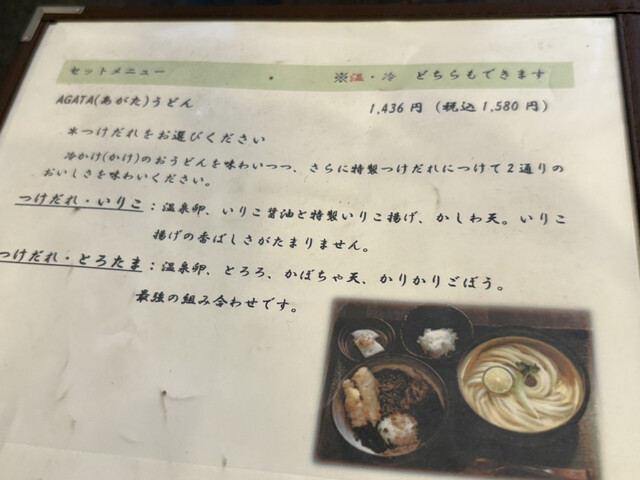 セットメニュー ※温・冷 どちらもできます
AGATA(あがた)うどん 1,436円 (税込1,580円)
*つけだれをお選びください
冷かけ(かけ)のおうどんを味わいつつ、さらに特製つけだれにつけて2通りの
おいしさを味わいください。
つけだれ・いりこ:温泉卵、いりこ醤油と特製いりこ揚げ、かしわ天。いりこ
揚げの香ばしさがたまりません。
つけだれ・とろたま:温泉卵、とろろ、かぼちゃ天、かりかりごぼう。
最強の組み合わせです。